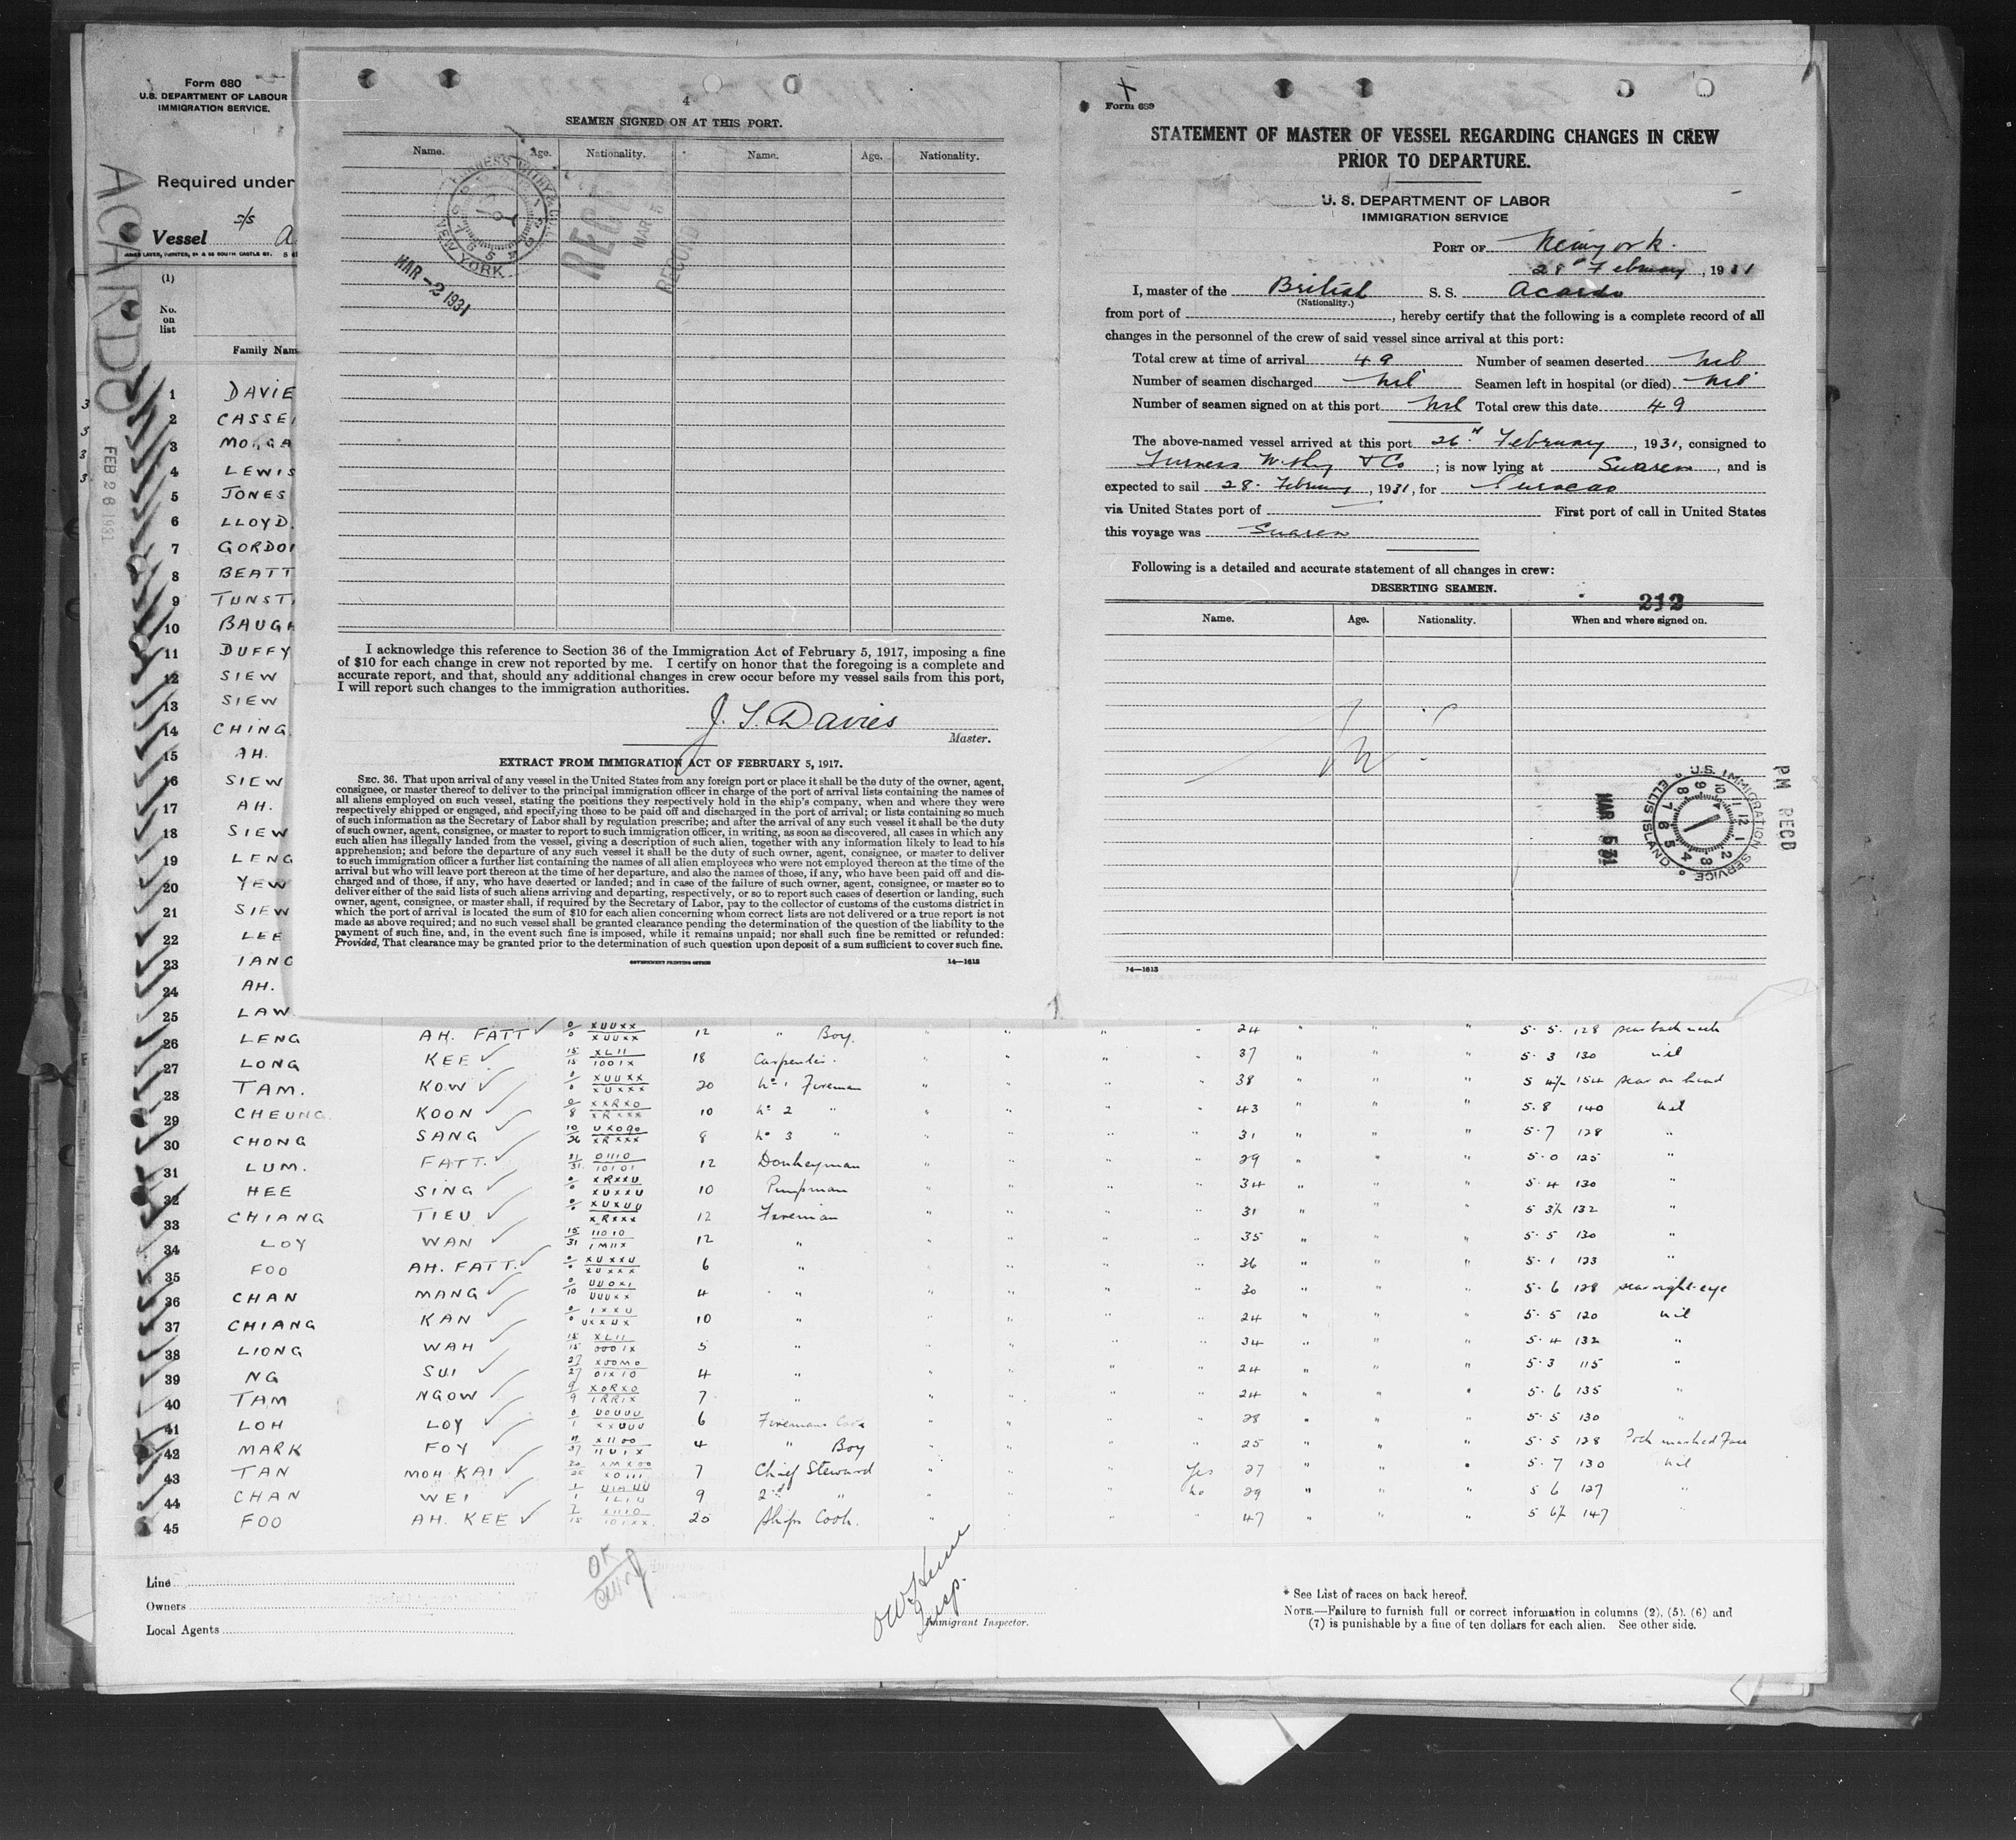 Form 680
U.S. DEPARTMENT OF LABOUR
IMMIGRATION SERVICE.
Required under
s/s
Vessel A
(1)
No.
on
list
Family Nam
ACARDO
FEB 26 1931
1 DAVIE
2 CASSE
3 MORGA
4 LEWIS
5 JONES
6 LLOYD.
7 GORDO
8 BEATT
9 TUNST
10 BAUGH
11 DUFFY
12 SIEW
13 SIEW
14 CHING
15 AH.
16 SIEW
17 AH.
18 SIEW
19 LENG
20 YEW
21 SIEW
22 LEE
23 IANG
24 AH.
25 LAW
4
SEAMEN SIGNED ON AT THIS PORT.
Name. Age. Nationality. Name. Age. Nationality.
NEW YORK
MAR -2 1931
MAR 5
RECORD
I acknowledge this reference to Section 36 of the Immigration Act of February 5, 1917, imposing a fine
of $10 for each change in crew not reported by me. I certify on honor that the foregoing is a complete and
accurate report, and that, should any additional changes in crew occur before my vessel sails from this port,
I will report such changes to the immigration authorities.
J. S. Davies
Master.
EXTRACT FROM IMMIGRATION ACT OF FEBRUARY 5, 1917.
SEC. 36. That upon arrival of any vessel in the United States from any foreign port or place it shall be the duty of the owner, agent,
consignee, or master thereof to deliver to the principal immigration officer in charge of the port of arrival lists containing the names of
all aliens employed on such vessel, stating the positions they respectively hold in the ship's company, when and where they were
respectively shipped or engaged, and specifying those to be paid off and discharged in the port of arrival; or lists containing so much
of such information as the Secretary of Labor shall by regulation prescribe; and after the arrival of any such vessel it shall be the duty
of such owner, agent, consignee, or master to report to such immigration officer, in writing, as soon as discovered, all cases in which any
such alien has illegally landed from the vessel, giving a description of such alien, together with any information likely to lead to his
apprehension; and before the departure of any such vessel it shall be the duty of such owner, agent, consignee, or master to deliver
to such immigration officer a further list containing the names of all alien employees who were not employed thereon at the time of the
arrival but who will leave port thereon at the time of her departure, and also the names of those, if any, who have been paid off and dis-
charged and of those, if any, who have deserted or landed; and in case of the failure of such owner, agent, consignee, or master so to
deliver either of the said lists of such aliens arriving and departing, respectively, or so to report such cases of desertion or landing, such
owner, agent, consignee, or master shall, if required by the Secretary of Labor, pay to the collector of customs of the customs district in
which the port of arrival is located the sum of $10 for each alien concerning whom correct lists are not delivered or a true report is not
made as above required; and no such vessel shall be granted clearance pending the determination of the question of the liability to the
payment of such fine, and, in the event such fine is imposed, while it remains unpaid; nor shall such fine be remitted or refunded:
Provided, That clearance may be granted prior to the determination of such question upon deposit of a sum sufficient to cover such fine.
GOVERNMENT PRINTING OFFICE 14—1613
Form 689
STATEMENT OF MASTER OF VESSEL REGARDING CHANGES IN CREW
PRIOR TO DEPARTURE.
U. S. DEPARTMENT OF LABOR
IMMIGRATION SERVICE
PORT OF New york.
28th February, 1931
I, master of the British S. S. Acardo
(Nationality.)
from port of , hereby certify that the following is a complete record of all
changes in the personnel of the crew of said vessel since arrival at this port:
Total crew at time of arrival 49 Number of seamen deserted Nil
Number of seamen discharged Nil Seamen left in hospital (or died) Nil
Number of seamen signed on at this port Nil Total crew this date 49
The above-named vessel arrived at this port 26th February, 1931, consigned to
Furness Withy & Co; is now lying at , and is
expected to sail 28. February, 1931, for Curacao
via United States port of First port of call in United States
this voyage was
Following is a detailed and accurate statement of all changes in crew:
DESERTING SEAMEN.
212
Name. Age. Nationality. When and where signed on.
U.S. IMMIGRATION SERVICE
ELLIS ISLAND
MAR 5 31
PM RECD
14—1613
26 LENG AH. FATT 12 " Boy. 24 5. 5. 128 scar back neck
27 LONG KEE 18 Carpenter. 37 5. 3 130 nil
28 TAM. KOW 20 No 1 Fireman 38 5 4½ 154 scar on head
29 CHEUNG. KOON 10 No 2 " 43 5. 8 140 Nil
30 CHONG SANG 8 No 3 " 31 5. 7 128 "
31 LUM. FATT. 12 Donkeyman 29 5. 0 125 "
32 HEE SING 10 Pumpman 34 5. 4 130 "
33 CHIANG TIEU 12 Fireman 31 5 3½ 132 "
34 LOY WAN 12 " 35 5. 5 130 "
35 FOO AH. FATT. 6 " 36 5. 1 123 "
36 CHAN MANG 4 " 30 5. 6 128 scar right eye
37 CHIANG KAN 10 " 24 5. 5 120 nil
38 LIONG WAH 5 " 34 5. 4 132 "
39 NG SUI 4 " 24 5. 3 115 "
40 TAM NGOW 7 " 24 5. 6 135 "
41 LOH LOY 6 Firemans Cook 28 5. 5 130 "
42 MARK FOY 4 " Boy 25 5. 5 128 Pock marked Face
43 TAN MOH KAI 7 Chief Steward Yes 27 5. 7 130 nil
44 CHAN WEI 9 2nd " No 29 5 6 127 "
45 FOO AH. KEE 20 Ships Cook. " 47 5 6½ 147 "
Line
Owners
Local Agents
Insp.
Immigrant Inspector.
* See List of races on back hereof.
NOTE.—Failure to furnish full or correct information in columns (2), (5), (6) and
(7) is punishable by a fine of ten dollars for each alien. See other side.